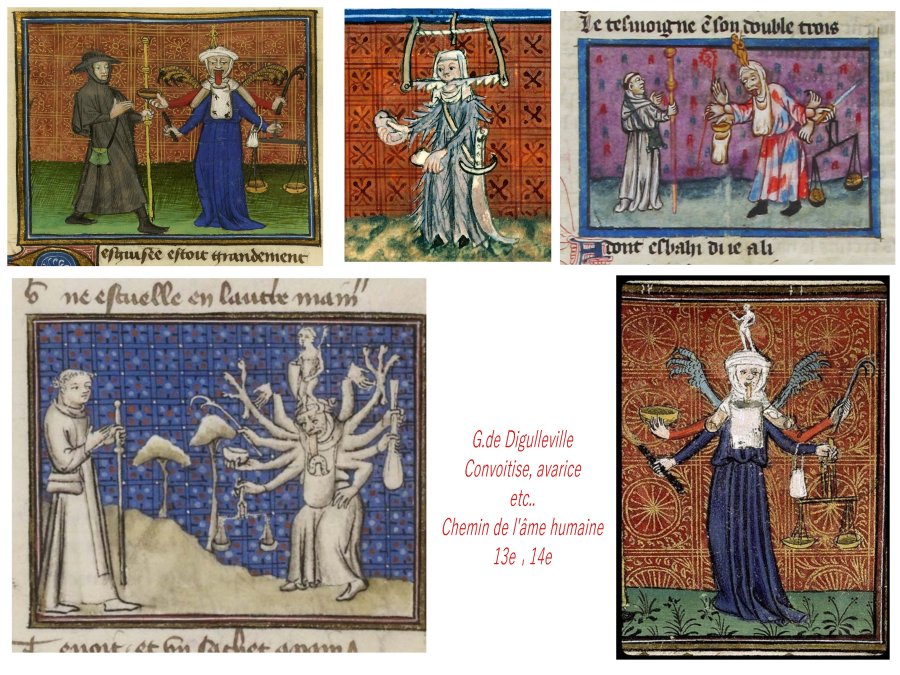 Le tesmoigne & son double trois
esguisee estoit grandement
dont esbahi di ie a li
ne escuelle en lautre main
G.de Digulleville
Convoitise, avarice
etc..
Chemin de l'âme humaine
13e , 14e